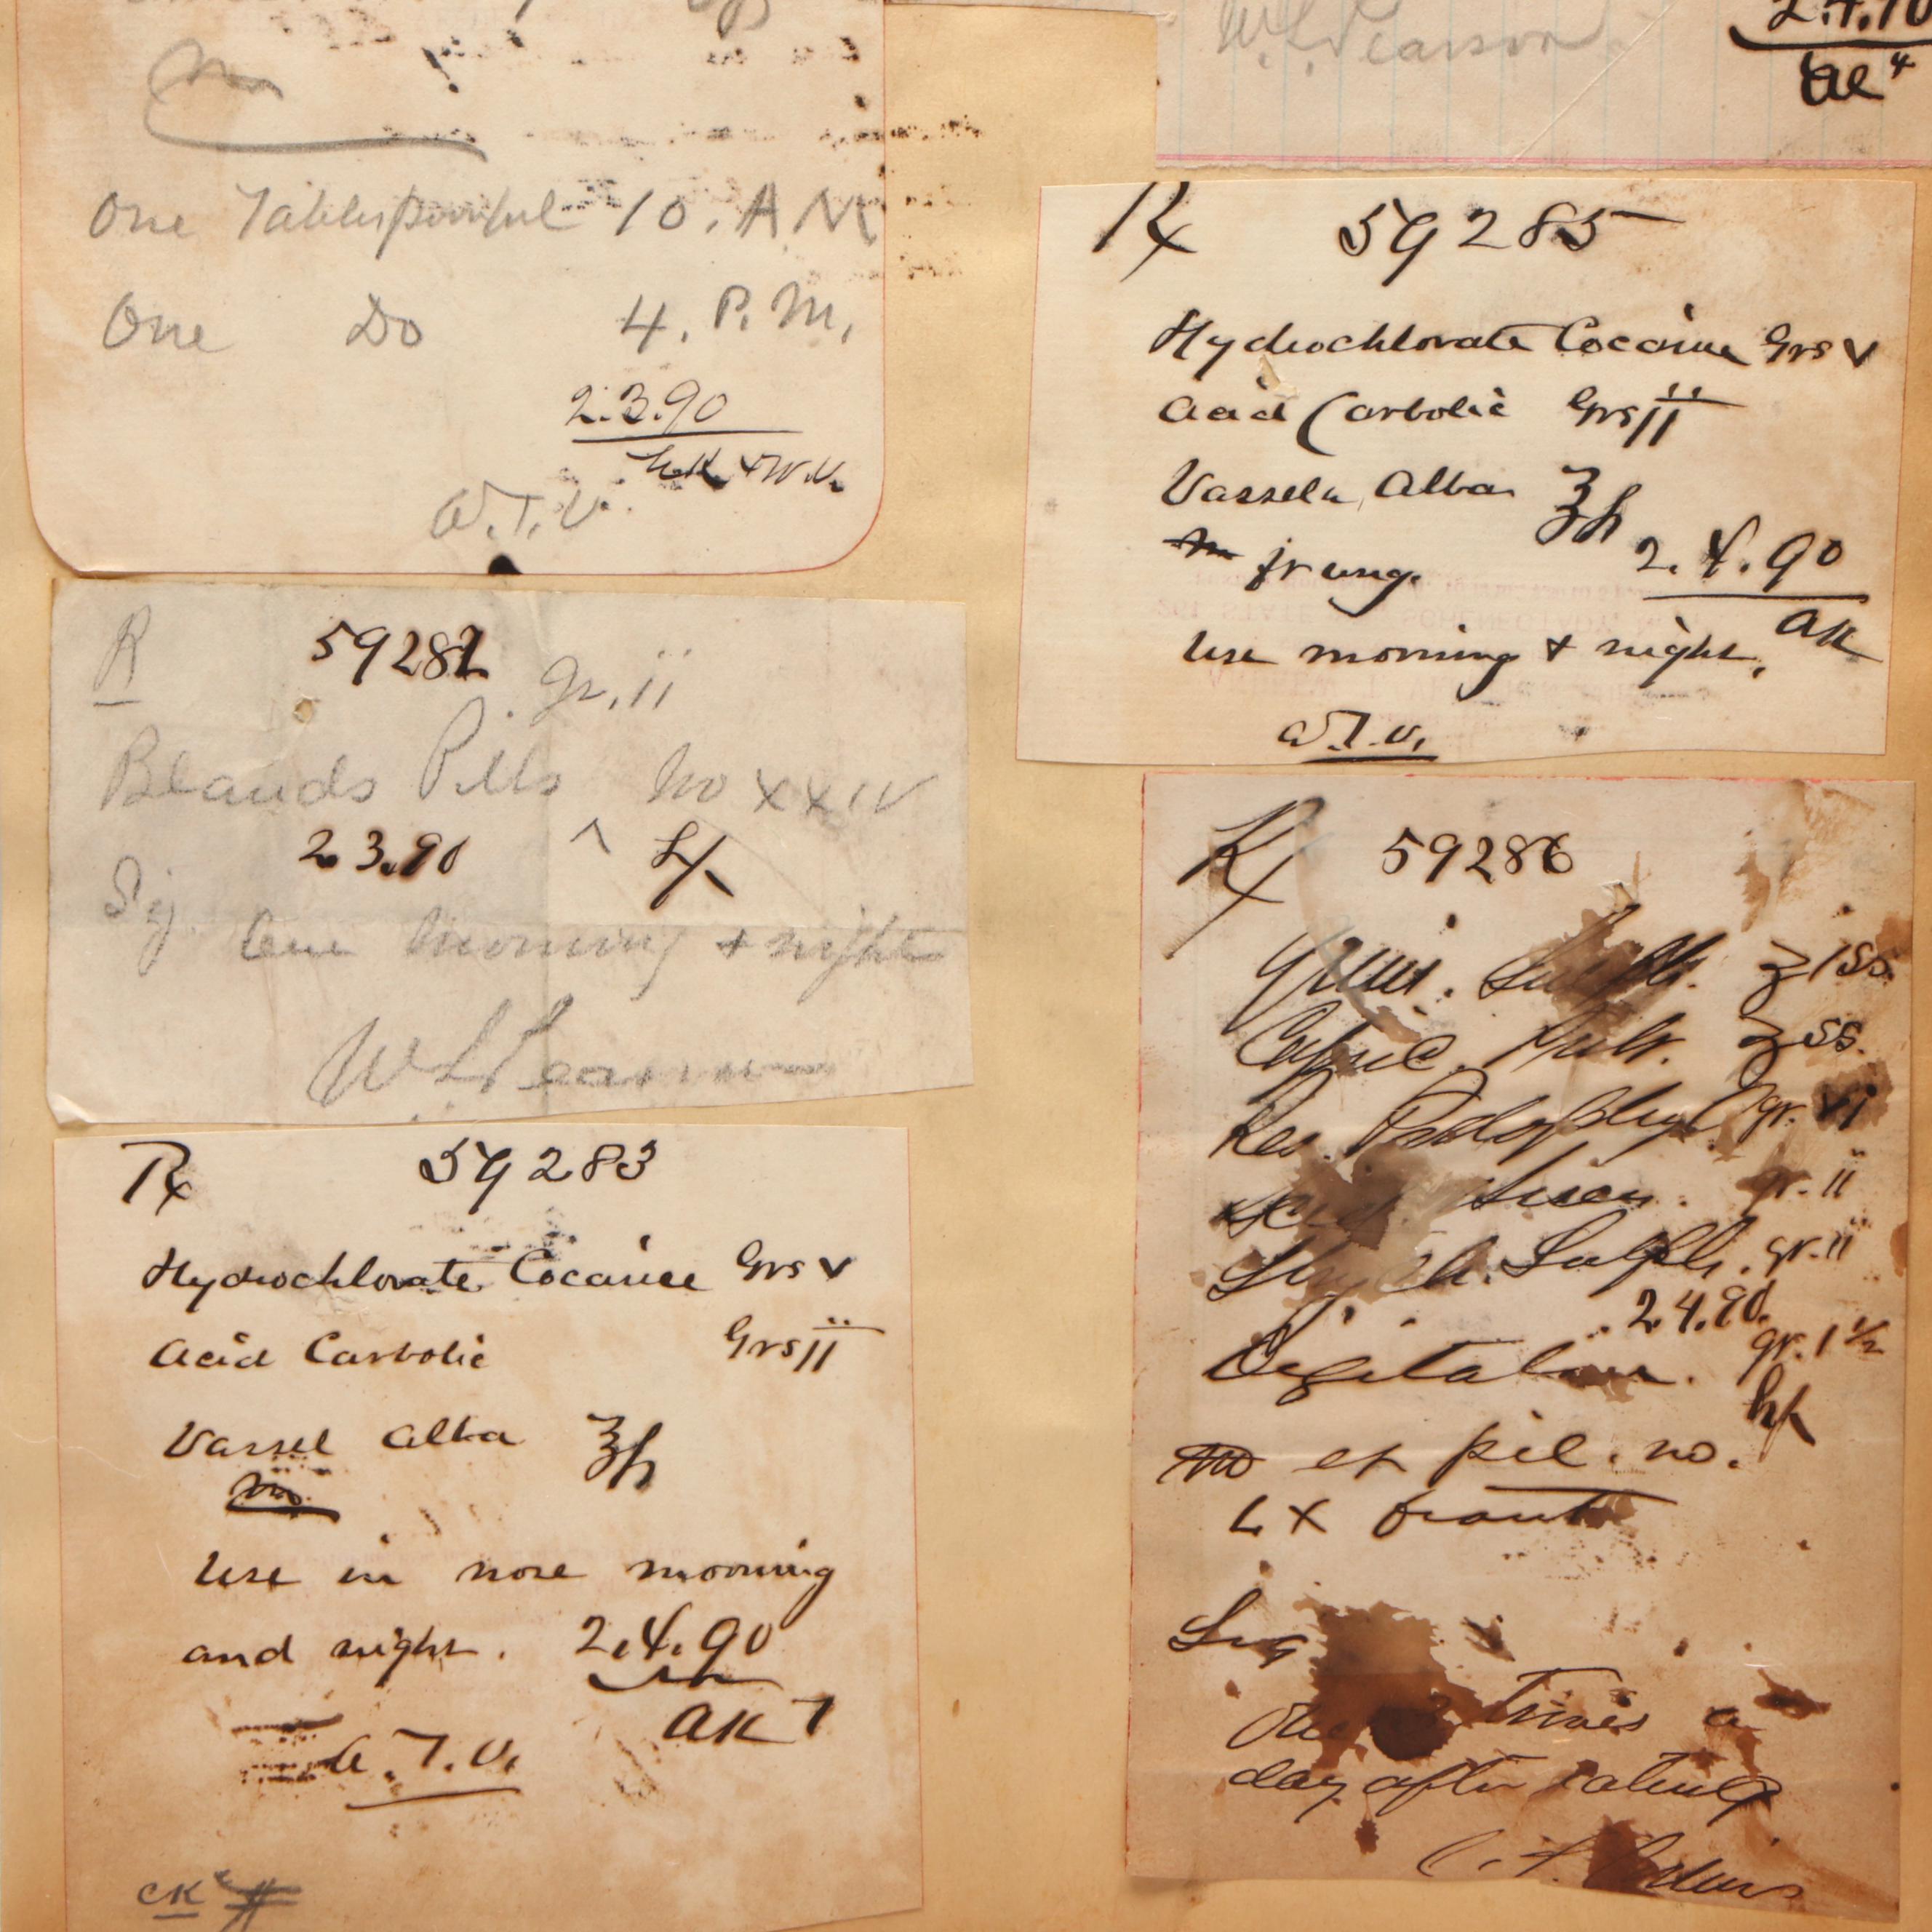 m
One Tablespoonful 10. A M
One Do 4. P. M.
2.3.90
W.T.V.
R 59282
gr. ii
Blauds Pills No XXIV
2.3.90
Sig. One morning + night
W L Pearson
Rx 59283
Hydrochlorate Cocaine Grs v
Acid Carbolic Grs ii
Vassel Alba ʒ
m
Use in nose morning
and night. 2.4.90
AK 7
W.T.V.
CK
W. L. Pearson
2.4.90
Rx 59285
Hydrochlorate Cocaine Grs v
Acid Carbolic Grs ii
Vassela Alba ʒ
m fr ung. 2.4.90
Use morning + night. AK
W.T.V.
Rx 59286
Quin. Sulph. ʒ iss.
Capsic. Pulv. ʒ ss.
Res. Podophyl gr. vi
gr. ii
Strych. Sulph. gr. ii
2.4.90.
Digitalin. gr. 1 1/2
m et pil. no. hk
LX
Sig
One 3 times a
day after eating